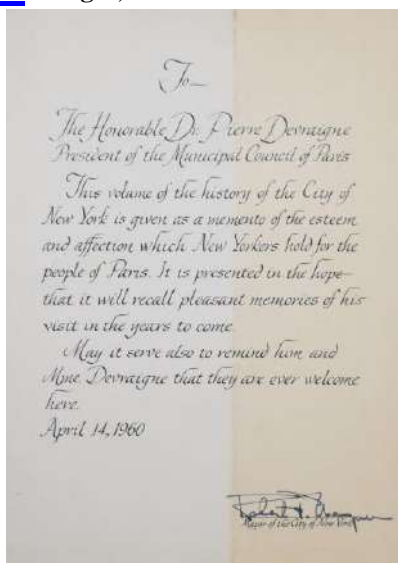 To—
The Honorable Dr. Pierre Devraigne
President of the Municipal Council of Paris
This volume of the history of the City of
New York is given as a memento of the esteem
and affection which New Yorkers hold for the
people of Paris. It is presented in the hope—
that it will recall pleasant memories of his
visit in the years to come.
May it serve also to remind him and
Mme. Devraigne that they are ever welcome
here.
April 14, 1960
Mayor of the City of New York